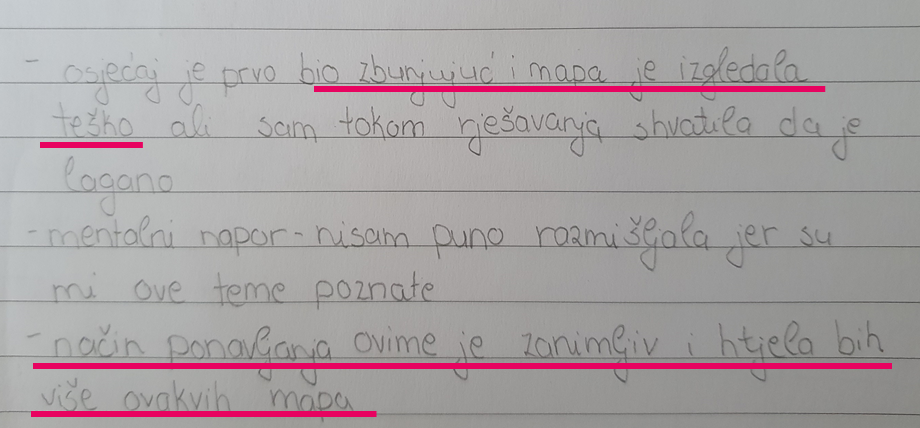 - osjećaj je prvo bio zbunjujuć i mapa je izgledala
teško ali sam tokom rješavanja shvatila da je
lagano
- mentalni napor - nisam puno razmišljala jer su
mi ove teme poznate
- način ponavljanja ovime je zanimljiv i htjela bih
više ovakvih mapa